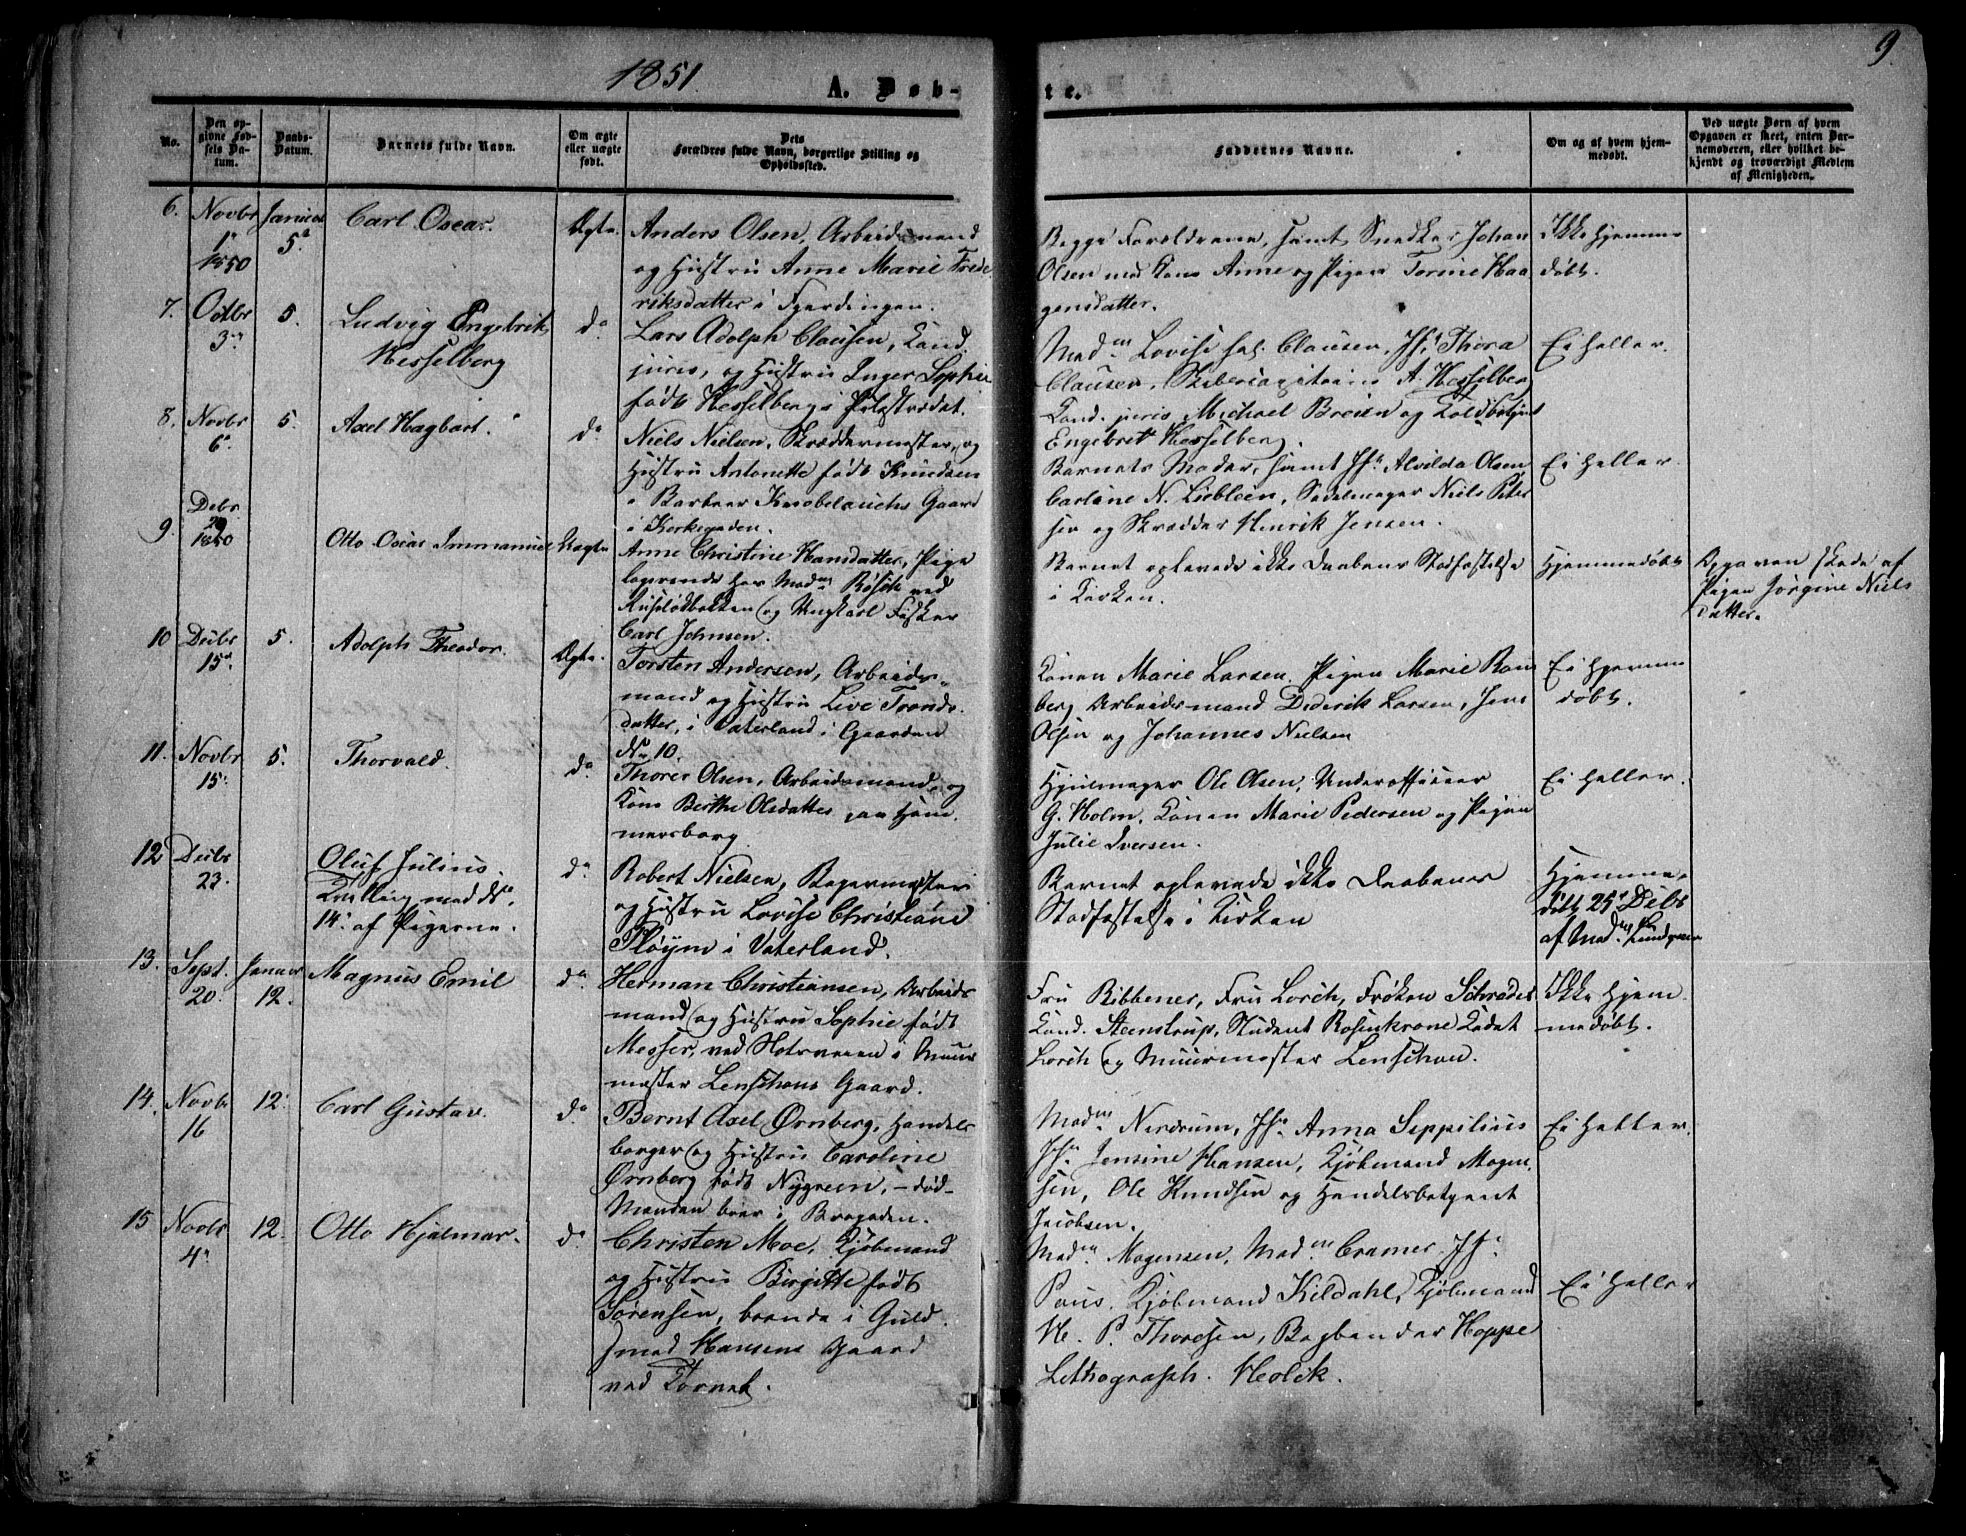 1851.
A. Døb-
te.
9.
No.
Den op-
givne Fød-
sels Da-
tum.
Daabs-
Datum.
Barnets fulde Navn.
Om ægte
eller uægte
født.
Dets
Forældres fulde Navn, borgerlige Stilling og
Opholdssted.
Faddernes Navne.
Om og af hvem hjem-
medøbt.
Ved uægte Børn af hvem
Opgaven er skeet, enten Bar-
nemoderen, eller hvilket be-
kjendt og troværdigt Medlem
af Menigheden.
6.
Novbr
1
1850
Januar
5
Carl Oscar.
Ægte.
Anders Olsen, Arbeidsmand
og Hustru Anne Marie Frede
riksdatter i Fjerdingen.
Begge Forældrene, samt Snedker Johan
Olsen med Kone Anne og Pigen Torine Haa
gensdatter.
Ikke hjemme
døbt.
7.
Octbr
3
5.
Ludvig Engebrik
Hesselberg
do
Lars Adolph Clausen, Cand.
juris, og Hustru Inger Sophie
født Hesselberg i Præstrædet.
Madm Lovise sal. Clausen, Jfr Thora
Clausen, A. Hesselberg
Cand. juris Michael Breien og
Engebret Hesselberg.
Ei heller.
8.
Novbr
6
5.
Axel Hagbart.
do
Niels Nielsen, Skræddermester, og
Hustru Antonette født Knudsen
i Barbeer Knobelauchs Gaard
i Kirkegaden.
Barnets Moder, samt Jfr Alvilda Olsen
Carline N. Lieblein, Sadelmager Niels Peter
sen og Skrædder Henrik Jensen.
Ei heller.
9.
Decbr
29
1850
Otto Oscar Immanuel
Uægte
Anne Christine Hansdatter, Pige
logerende hos Madm Røsch ved
Ruseløkbakken og Ungkarl Fisker
Carl Johnsen.
Barnet oplevede ikke Daabens Stadfæstelse
i Kirken.
Hjemmedøbt
Opgaven skede af
Pigen Jørgine Niels
datter.
10
Decbr
15
5.
Adolph Theodor.
Ægte.
Torsten Andersen, Arbeids-
mand og Hustru Live Tronds-
datter, i Vaterland i Gaarden
No 10.
Konen Marie Larsen. Pigen Marie Ram
berg Arbeidsmand Diderik Larsen, Jens
Olsen og Johannes Nielsen
Ei hjemme
døbt.
11.
Novbr
15
5.
Thorvald.
do
Thorer Olsen, Arbeidsmand, og
Kone Berthe Olsdatter paa Ham
mersborg
Hjulmager Ole Olsen, Underofficeer
G. Holm, Konen Marie Pedersen og Pigen
Julie Iversen.
Ei heller.
12
Decbr
23.
Oluf Julius.
Tvilling med No
14. af Pigerne.
do
Robert Nielsen, Bagermester
og Hustru Lovise Christiane
Pløym i Vaterland.
Barnet oplevede ikke Daabens
Stadfæstelse i Kirken
Hjemme-
døbt 25 Decbr
af Madm Lundgreen
13.
Sept.
20.
Januar
12.
Magnus Emil
do
Herman Christiansen, Arbeids
mand og Hustru Sophie født
Messer, ved Hotsveien i Muur
mester Lenschous Gaard.
Fru Ribbener, Fru Lorch, Frøken Schrøder
Cand. Steenstrup, Student Rosenkrone Cadet
Lorch og Muurmester Lenschou.
Ikke hjem
medøbt.
14.
Novbr
16
12.
Carl Gustav.
do
Bernt Axel Ørnberg, Handels
borger og Hustru Caroline
Ørnberg født Nygreen, – død –
Manden boer i Brogaden.
Madm Nerdrum, Jfr Anna Seppilius
Jfr Jensine Hansen, Kjøbmand Mogen
sen, Ole Knudsen og Handelsbetjent
Jacobsen.
Ei heller.
15
Novbr
4
12.
Otto Hjalmar.
do
Christen Moe, Kjøbmand
og Hustru Birgitte født
Sørensen, boende i Guld
smed Hansens Gaard
ved Torvet.
Madm Mogensen, Madm Cramer Jfr
Paus. Kjøbmand Kildahl, Kjøbmand
H. P. Thoresen, Bogbinder Hoppe
Lithograph. Heolik.
Ei heller